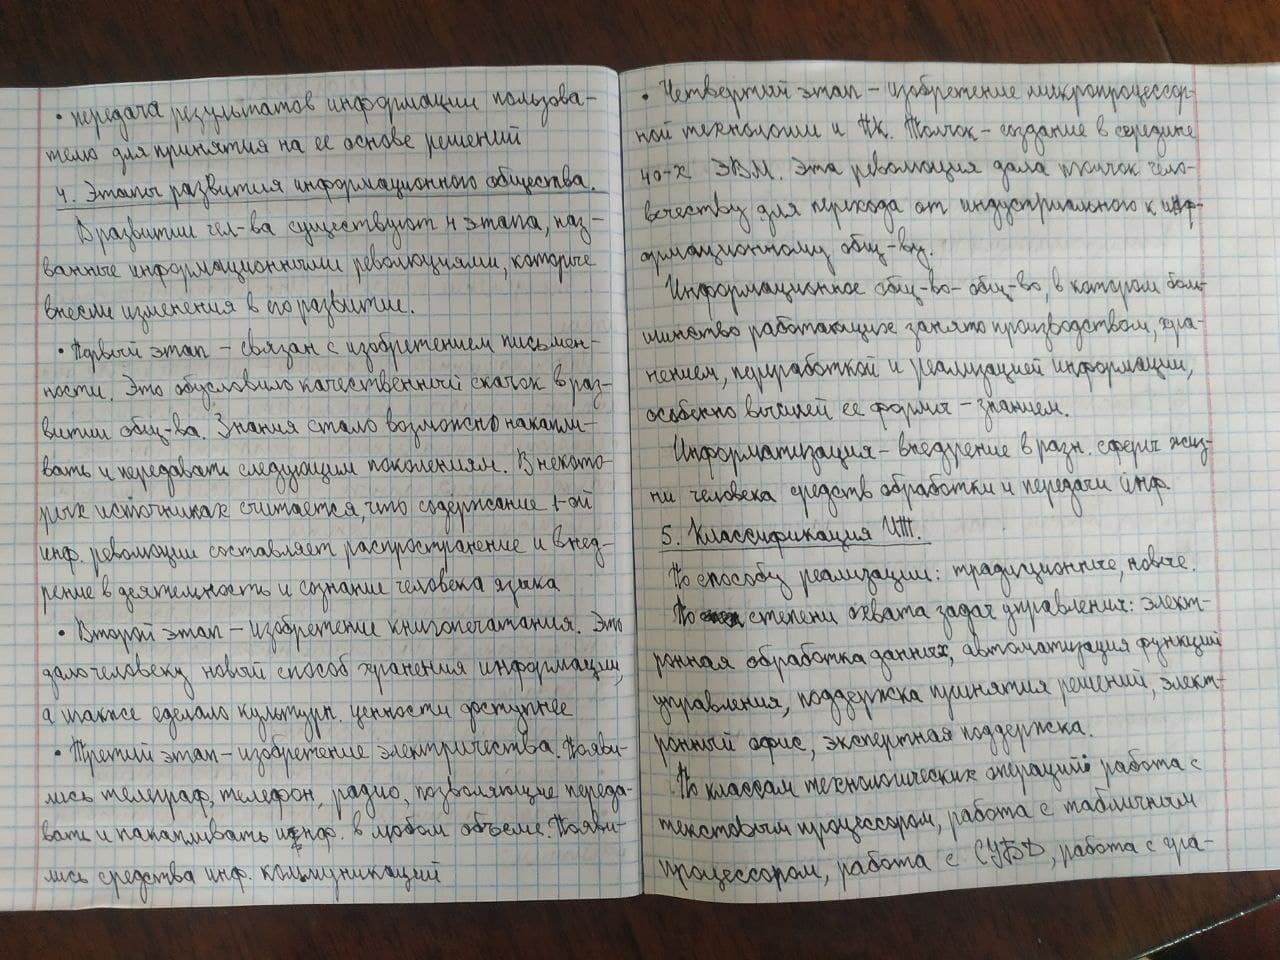 • передача результатов информации пользова-
телю для принятия на ее основе решений
4. Этапы развития информационного общества.
В развитии чел-ва существуют 4 этапа, наз-
ванные информационными революциями, которые
внесли изменения в его развитие.
• Первый этап – связан с изобретением письмен-
ности. Это обусловило качественный скачок в раз-
витии общ-ва. Знания стало возможно накапли-
вать и передавать следующим поколениям. В некото-
рых источниках считается, что содержание 1-ой
инф. революции составляет распространение и внед-
рение в деятельность и сознание человека языка
• Второй этап – изобретение книгопечатания. Это
дало человеку новый способ хранения информации,
а также сделало культурн. ценности доступнее
• Третий этап – изобретение электричества. Появи-
лись телеграф, телефон, радио, позволяющие переда-
вать и накапливать инф. в любом объеме. Появи-
лись средства инф. коммуникаций
• Четвертый этап – изобретение микропроцессор-
ной технологии и ПК. Толчок – создание в середине
40-х ЭВМ. Эта революция дала толчок чело-
вечеству для перехода от индустриального к инф-
ормационному общ-ву.
Информационное общ-во – общ-во, в котором боль-
шинство работающих занято производством, хра-
нением, переработкой и реализацией информации,
особенно высшей ее формы – знанием.
Информатизация – внедрение в разн. сферы жиз-
ни человека средств обработки и передачи инф.
5. Классификация ИТ.
По способу реализации: традиционные, новые.
По степени охвата задач управления: элект-
ронная обработка данных, автоматизация функций
управления, поддержка принятия решений, элект-
ронный офис, экспертная поддержка.
По классам технологических операций: работа с
текстовым процессором, работа с табличным
процессором, работа с СУБД, работа с гра-